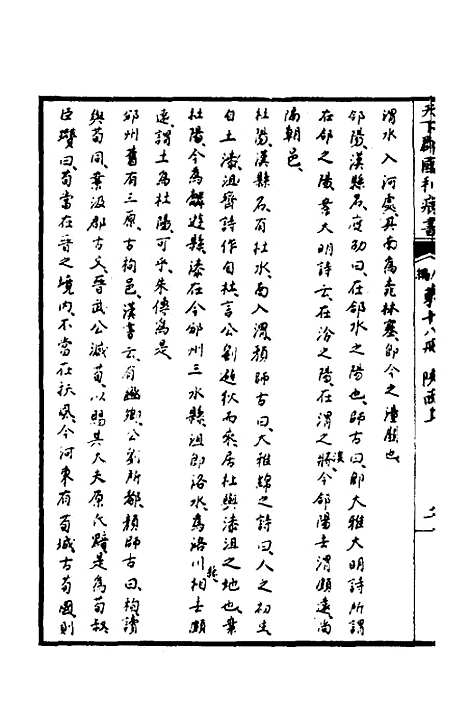 天下郡國利病書 編 第十八册 陝西上
渭水入河處其南為桃林塞即今之潼關也
郃陽漢縣名應劭曰在郃水之陽也師古曰即大雅大明詩所謂
在郃之陽葉大明詩云在洽之陽在渭之涘今郃陽去渭頗遠尚
隔朝邑
杜陽漢縣名有杜水南入渭顏師古曰大雅緜之詩曰人之初生
自土漆沮齊詩作自杜言公劉避狄而來居杜與漆沮之地也葉
杜陽今為麟遊縣漆在今邠州三水縣沮即洛水為洛川相去頗
遠謂土為杜陽可乎朱傳為是
邠州舊有三原古栒邑漢書云有豳鄉公劉所都顏師古曰栒讀
與荀同葉汲郡古文晉武公滅荀以賜其大夫原氏黯是為荀叔
臣瓚曰荀當在晉之境內不當在扶風今河東有荀城古荀國則